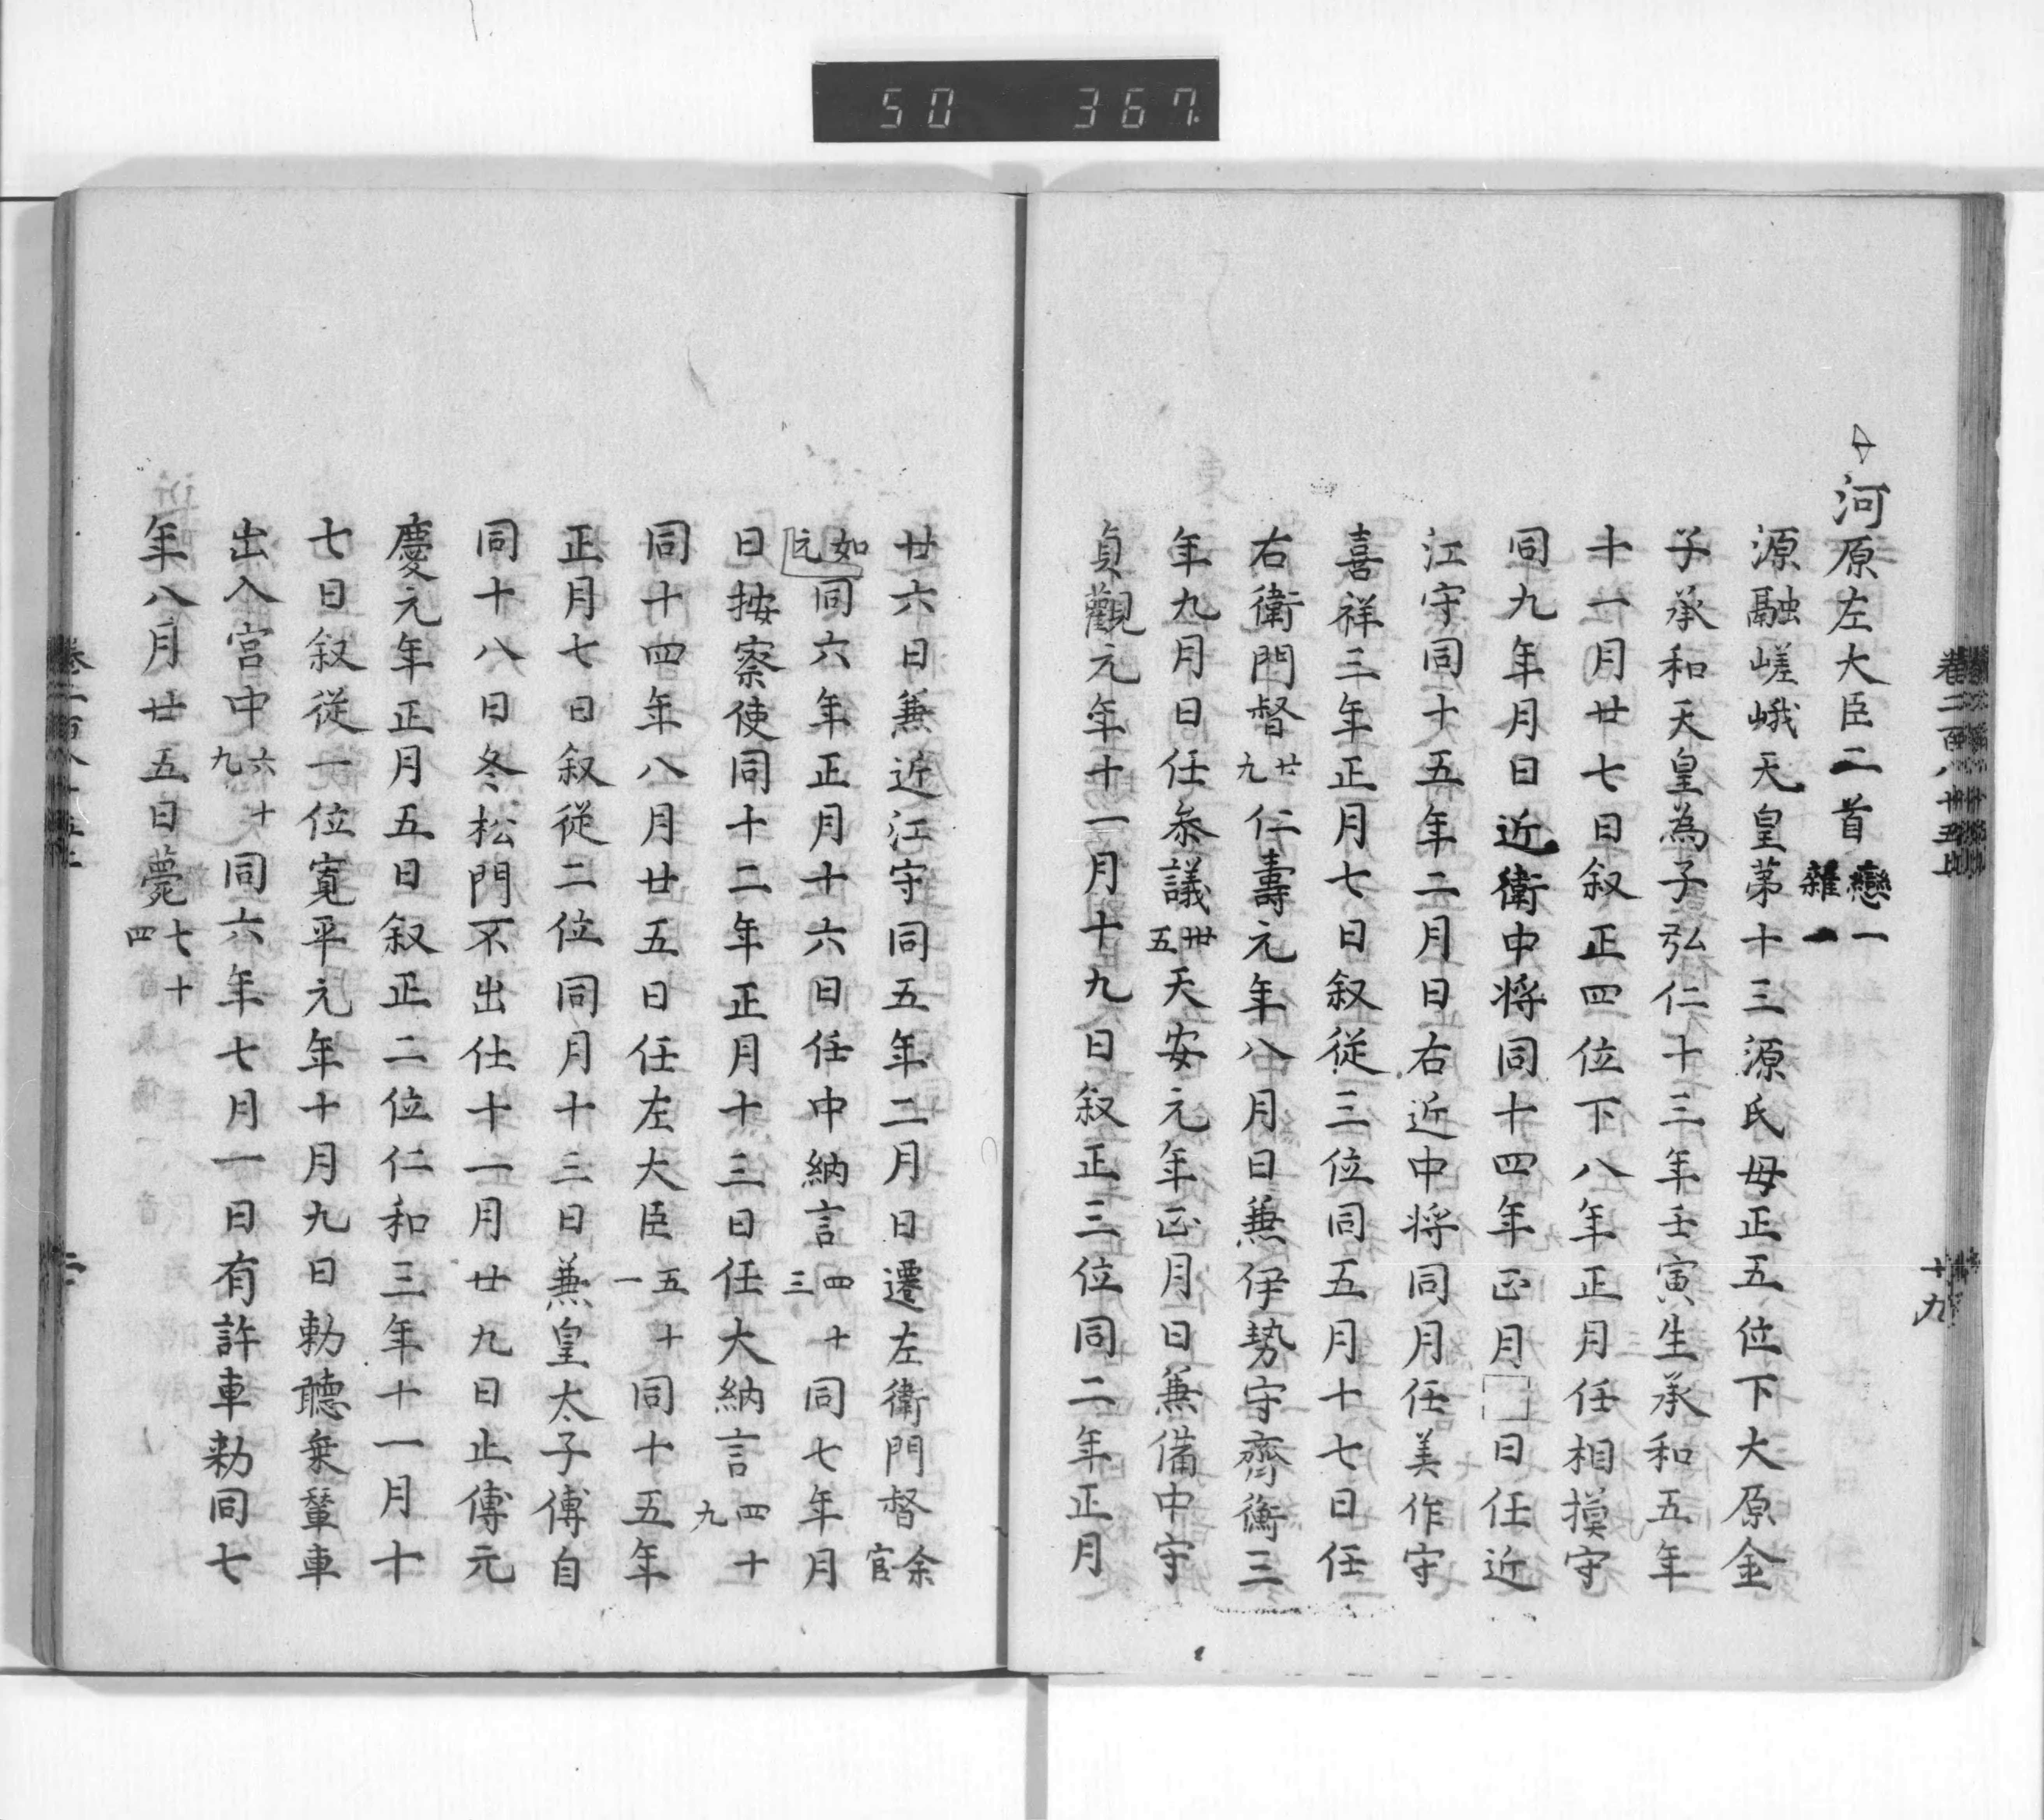 50 367
河原左大臣二首 戀一 雜一
源融嵯峨天皇第十三源氏母正五位下大原金
子承和天皇為子弘仁十三年壬寅生承和五年
十一月廿七日叙正四位下八年正月任相摸守
同九年月日近衛中将同十四年正月□日任近
江守同十五年二月日右近中将同月任美作守
喜祥三年正月七日叙従三位同五月十七日任
右衛門督廿九仁壽元年八月日兼伊勢守齊衡三
年九月日任参議卅五天安元年正月日兼備中守
貞觀元年十一月十九日叙正三位同二年正月
廿六日兼近江守同五年二月日遷左衛門督余官
如元同六年正月十六日任中納言四十三同七年月
日按察使同十二年正月十三日任大納言四十九
同十四年八月廿五日任左大臣五十一同十五年
正月七日叙従二位同月十三日兼皇太子傅自
同十八日冬松門不出仕十一月廿九日止傅元
慶元年正月五日叙正二位仁和三年十一月十
七日叙従一位寛平元年十月九日勅聴乗輦車
出入宮中六十九同六年七月一日有許車勅同七
年八月廿五日薨七十四
十九